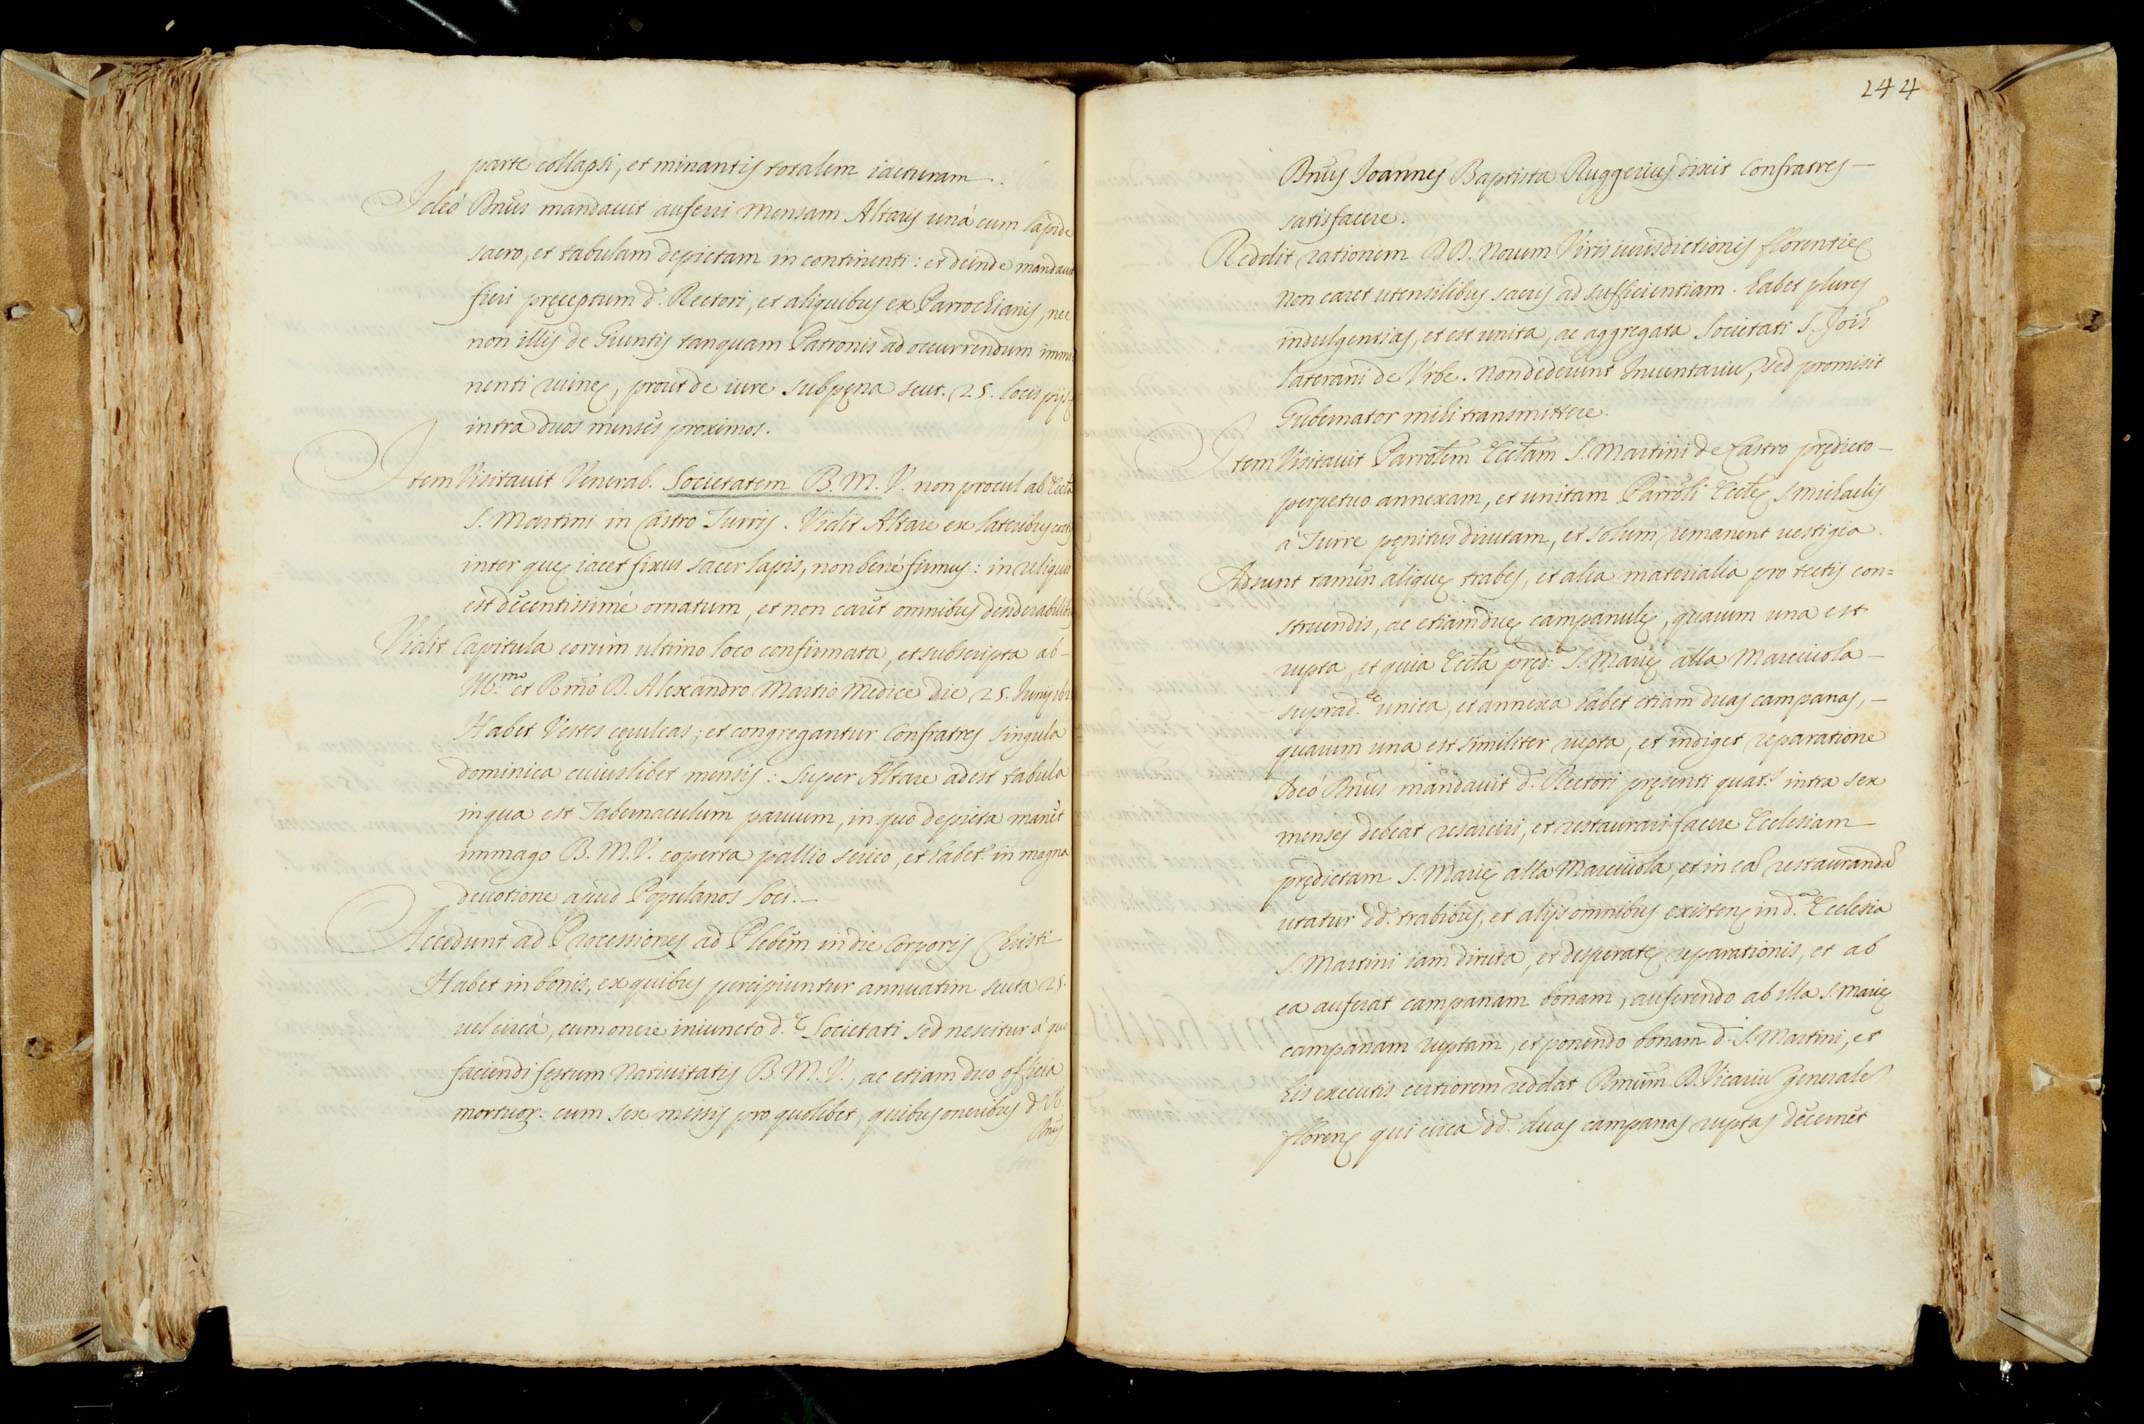 parte collapsi, et minantis totalem iacturam.
Ideó Dnũs mandavit auferri mensam Altaris unà cum lapide
sacro, et tabulam depictam in continenti: et deinde mandavit
fieri pręceptum d. Rectori, et aliquibus ex Parrochianis, nec
non illis de Giuntis tanquam Patronis ad occurrendum immi
nenti ruinę, prout de iure sub pęna scut. 25. locis pijs
intra duos menses proximos.
Item Visitavit Venerab. Societatem B. M. V. non procul ab Eccl̃a
S. Martini in Castro Turris. Vidit Altare ex lateribus
inter quę iacet fixus sacer lapis, non bené firmus: in reliquis
est decentissimé ornatum, et non caret omnibus desiderabilib.
Vidit Capitula eorum ultimo loco confirmata, et subscripta ab-
Ill.mo et Rmo D. Alexandro Martio Medice die 25. Junij
Habet Vestes cęruleas; et congregantur Confratres singula
dominica cuiuslibet mensis: super Altare adest tabula
in qua est Tabernaculum parvum, in quo depicta manet
immago B. M. V. coperta pallio serico, et habet. in magna
devotione apud Populanos loci.-
Accedunt ad Processiones ad Plebem in die Corporis Christi
Habet in bonis, ex quibus percipiuntur annuatim scuta 25.
vel circà, cum onere iniuncto d.e Societati sed nescitur à quo
faciendi festum Nativitatis B. M. V., ac etiam duo officia
mortuor. cum sex missis pro quolibet, quibus oneribus d. R.
Dnũs
244
Dnũs Joannes Baptista Ruggerius dixit Confratres-
satisfacere.
Reddit rationem D.D. Novem Viris iurisdictionis florentię
non caret utensilibus sacris ad sufficientiam. habet plures
indulgentias, et est unita, ac aggregata Societati S. Jois̃
Laterani de Vrbe. Non dederunt Inventariũ, sed promisit
Gubernator mihi transmittere.
Item Visitavit Parrolem̃ Eccl̃am S. Martini de Castro prędicto-
perpetuo annexam, et unitam Parroli Eccl̃ę S Michaelis
à Turre pęnitus dirutam, et solum remanent vestigia.
Adsunt tamen aliquę trabes, et alia materialia pro tectis con=
struendis, ac etiam duę campanulę, quarum una est
rupta, et quia Eccl̃a pręd.a S. Marię alla Marcivola-
suprad.e unita, et annexa habet etiam duas campanas,-
quarum una est similiter rupta, et indiget reparatione
Ideó Dnũs mandavit d. Rectori pręsenti quat.s intra sex
menses debeat resarciri, et restaurari facere Ecclesiam
prędictam S. Marię alla Marcivola, et in ea restauranda
utatur dd. trabibus, et alijs omnibus existen. in d.a Ecclesia
S. Martini iam diruta, et desperatę reparationis, et ab
ea auferat campanam bonam, auferendo ab illa S. Marię
campanam ruptam, et ponendo bonam d. S. Martini, et
his executis certiorem reddat Rmum̃ D. Vicariũ generalẽ
floren. qui circa dd. duas campanas ruptas decernet